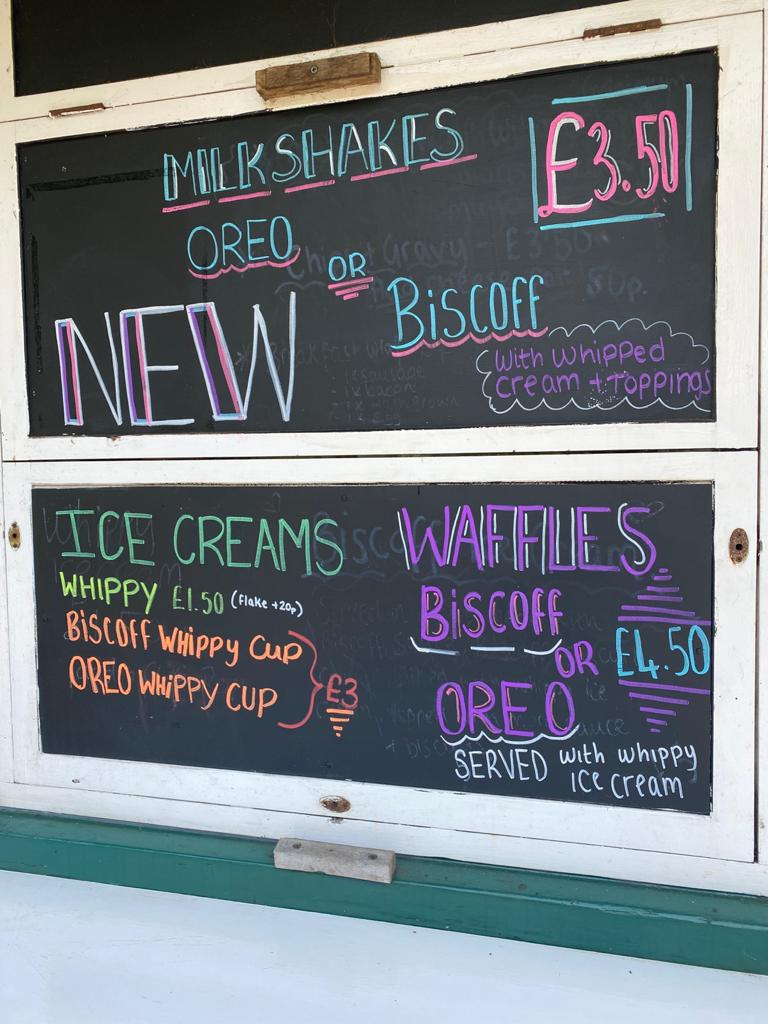 MILKSHAKES
£3.50
OREO
OR
BISCOFF
NEW
with whipped
cream + toppings
Chips + Gravy - £3.50
ICE CREAMS
WHIPPY £1.50 (flake +20p)
BISCOFF WHIPPY CUP
OREO WHIPPY CUP
£3
WAFFLES
BISCOFF
OR
£4.50
OREO
SERVED with whippy
ice cream